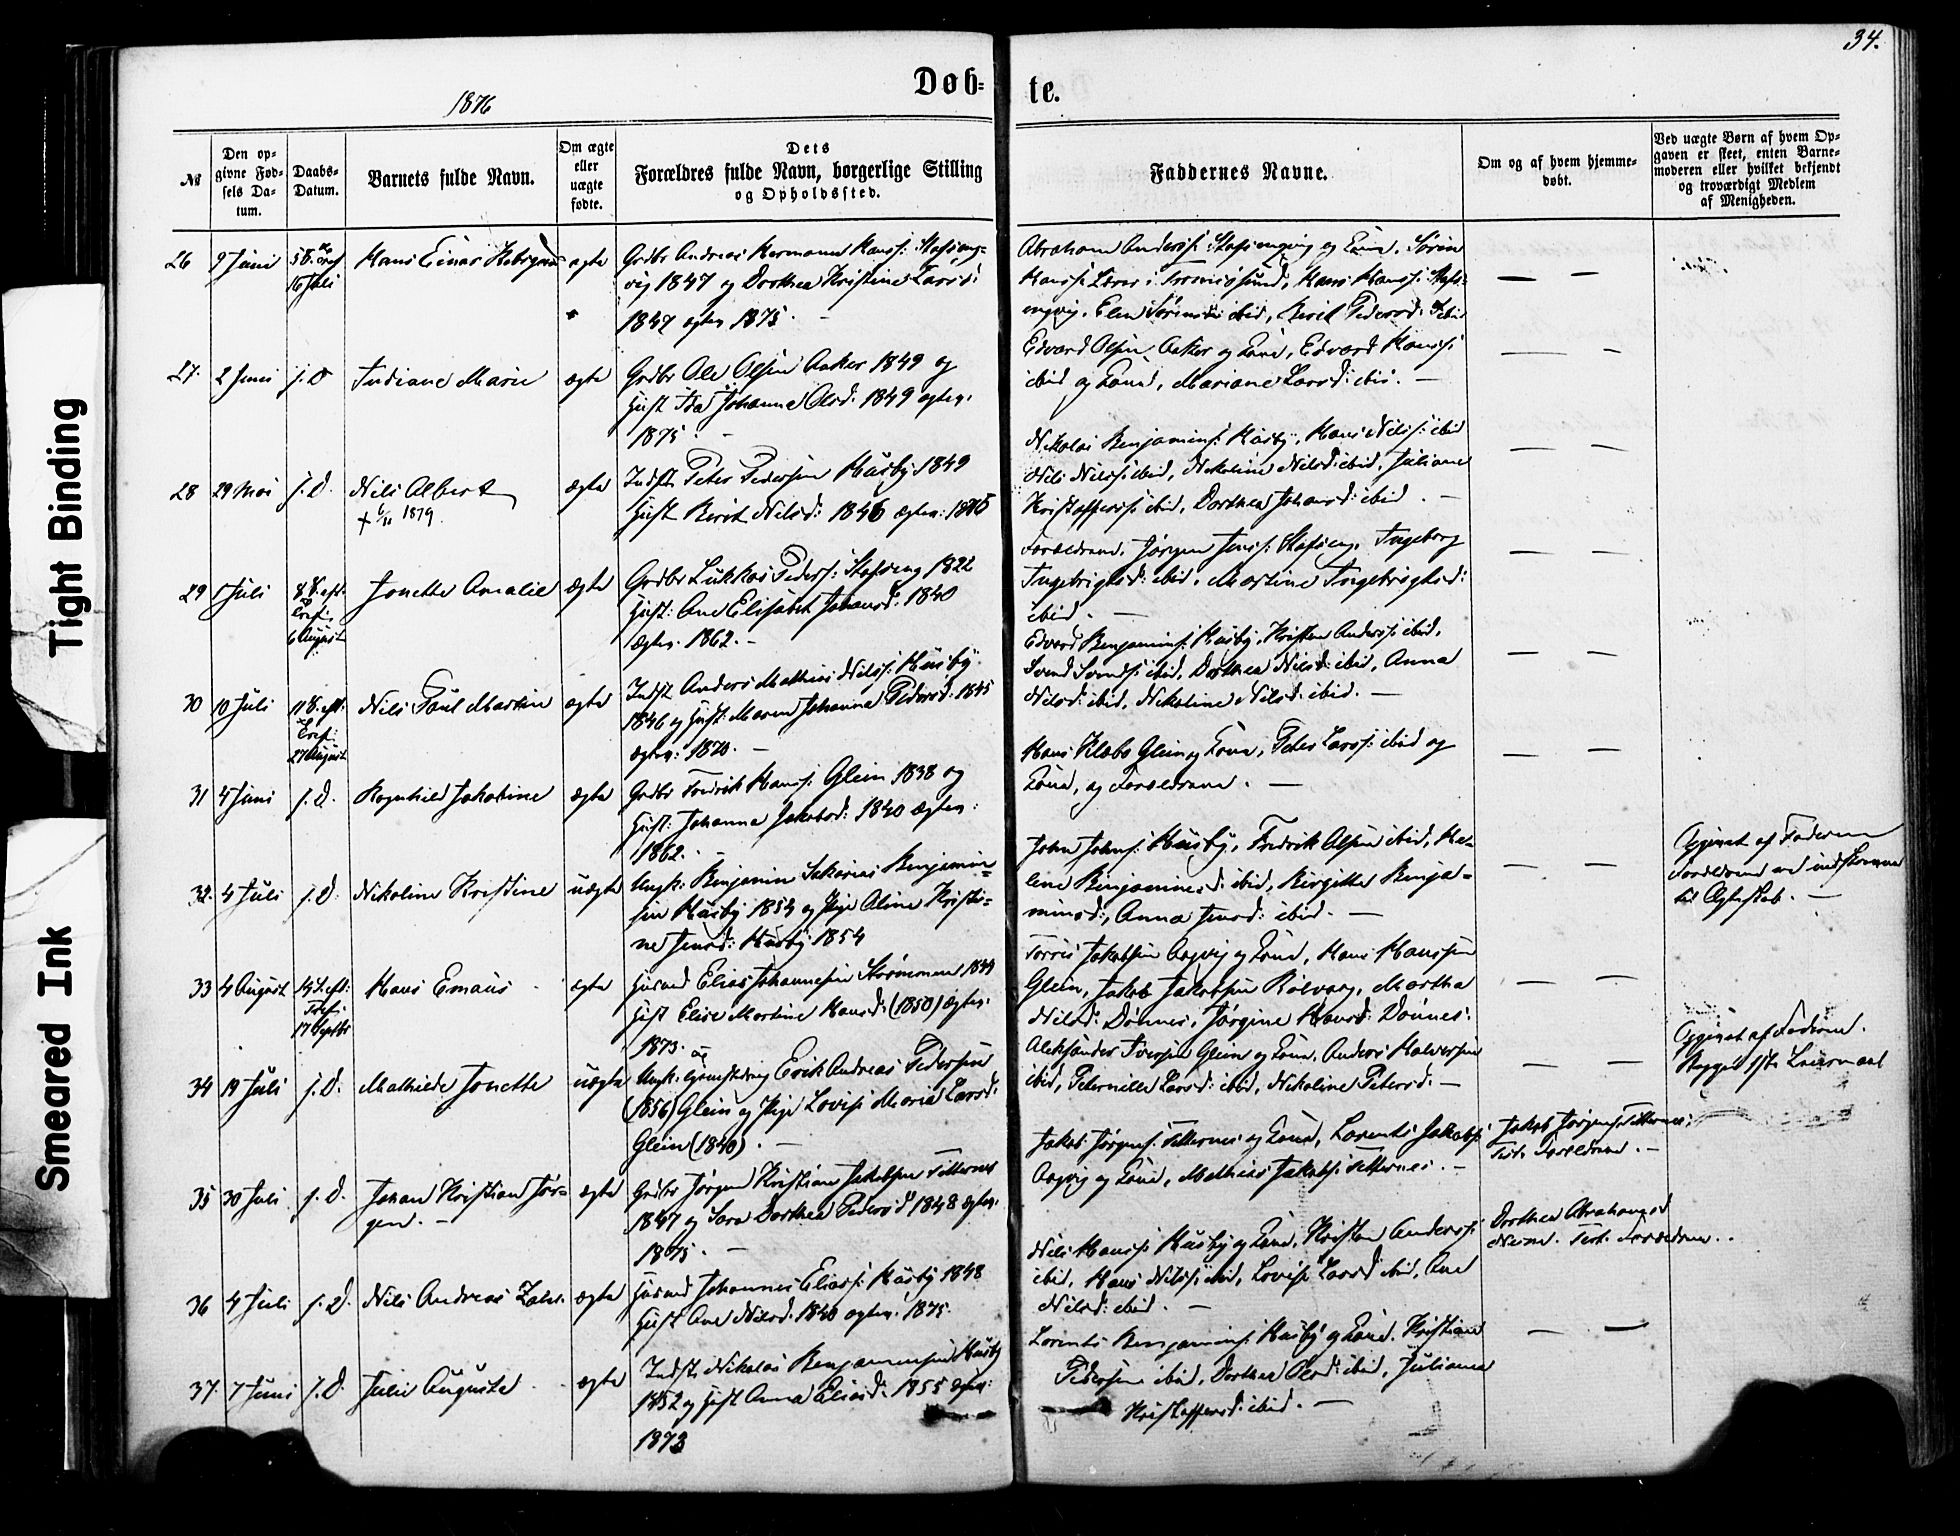 34.
Døb-
te.
1876
Tight Binding
Smeared Ink
№
Den op-
givne Fød-
sels Da-
tum.
Daabs-
Datum.
Barnets fulde Navn.
Om ægte
eller
uægte
fødte.
Dets
Forældres fulde Navn, borgerlige Stilling
og Opholdssted.
Faddernes Navne.
Om og af hvem hjemme-
døbt.
Ved uægte Børn af hvem Op-
gaven er skeet, enten Barne-
moderen eller hvilket bekjendt
og troværdigt Medlem
af Menigheden.
26 9 Juni 5 S. e. Tref 16 Juli Hans Einar ægte
Grdbr Andreas Hermann Hanss: Stafseng-
vig 1847 og Dorthea Kristine Larsd:
1847 egtev. 1875. –
Abraham Anderss: Stafsengvig og Kone, Sören
Hanss: Lærer i Tromösund, Hans Hanss: Stafs-
engvig, Elen ibid, Berit Pedersd: ibid
27. 2 Juni j. D Indiane Marie ægte
Grdbr Ole Olsen Aaker 1849 og
Hust Ida Johanna Olsd: 1849 egtev.
1875. –
Edvard Olsen Aaker og Kone, Edvard Hanss:
ibid og Kone, Mariane Larsd: ibid. –
28 29 Mai j. D. Nils Albert ægte
+ 1879.
Indst. Peter Pedersen Husby 1849
Hust Berit Nilsd: 1846 egtev: 1875
Nikolai Benjamins: Husby, Hans Nilss: ibid
Nils Nilss: ibid, Nikoline Nilsd: ibid, Juliane
Kristoffersd: ibid, Dorthea Johansd: ibid. –
29 1 Juli 8 S. eft. Tref. 6 August Jonette Amalie ægte
Grdbr Lukkas Pederss: Stafseng 1822
Hust: Ane Elisabet Johansd: 1840
egtev. 1862. –
Forældrene, Jörgen Jenss: Stafseng, Ingeborg
Ingebrigtsd: ibid, Martine Ingebrigtsd:
ibid. –
30 10 Juli 11 S. eft: Tref: 27 August Nils Paul Martin ægte
Indst Anders Mathias Nilss: Husby
1846 og Hust: Maren Johanna Pedersd: 1845
egtev: 1870. –
Edvard Benjamins: Husby, Kristen Anderss: ibid,
Svend Svends: ibid, Dorthea Nilsd: ibid, Anna
Nilsd: ibid, Nikoline Nilsd: ibid. –
31 4 Juni j. D. Ragnhild Jakobine ægte
Grdbr Fredrik Hanss: Glein 1838 og
Hust: Johanna Jakobsd: 1840 egtev:
1862. –
Hans Klæbo Glein og Kone, Peter Larss: ibid og
Kone, og Forældrene. –
32. 4 Juli j. D. Nikoline Kristine uægte
Ungk: Benjamin Sakarias Benjamin-
sen Husby 1854 og Pige Aline Kristi-
ne Jensd: Husby 1854
John Johns: Husby, Fredrik Olsen ibid, He-
lene Benjaminsd: ibid, Birgitta Benja-
minsd:, Anna Jensd: ibid. –
Opgivet af Faderen
Forældrene ere indkomne
til Egteskab. –
33 4 August 14 S. eft: Tref: 17 Septbr Hans Emaus ægte
Husmd Elias Johannesen 1844
Hust Elise Martine Hansd: (1850) egtev.
1873.
Torris Jakobsen Aagvig og Kone, Hans Hanssen
Glein, Jakob Jakobsen Rölvaag, Martha
Nilsd: Dönnes, Jörgine Hansd: Dönnes.
34 19 Juli j. D. Mathilde Jonette uægte
Ungk: og Erik Andreas Pedersen
(1856) Glein og Pige Lovise Maria Larsd:
Glein (1840). –
Aleksander Iversen Glein og Kone, Anders Halversen
ibid, Peternille Larsd: ibid, Nikoline Petersd: –
Opgivet af Faderen.
Begges 1ste Leiermaal
35 30 Juli j. D. Johan Kristian Jör-
gen. – ægte
Grdbr Jörgen Kristian Jakobsen Titternes
1847 og Sara Dorthea Pedersd 1848 egtev.
1875. –
Jakob Jörgens: Titternes og Kone, Lorents Jakobs:
Aagvig og Kone, Mathias Jakobs: Titternes. –
Jakob Jörgens: Titternes,
Test. Forældrene. –
36 4 Juli j. D. Nils Andreas ægte
Husmd Johannes Eliass: Husby 1848
Hust Ane Nilsd. 1840 egtev. 1875.
Nils Hanss: Husby og Kone, Kristen Anderss:
ibid, Hans Nilss: ibid, Lovise Larsd ibid, Ane
Nilsd: ibid. –
Dorthea Abrahamsd
Test. Forældrene. .
37. 7 Juni j. D. Julie Augusta ægte
Indst. Nikolai Benjaminsen Husby
1852 og Hust Anna Eliasd: 1855 egtev:
1873
Lorents Benjamins: Husby og Kone, Kristian
Pedersen ibid, Dorthea Olsd: ibid, Juliane
Kristoffersd: ibid. –